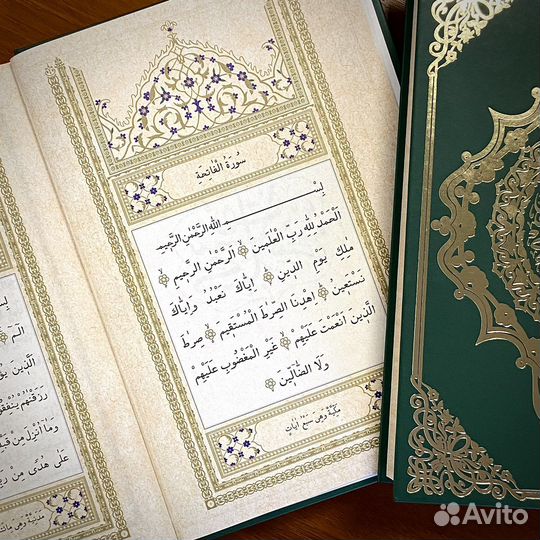 سُورَةُ الْفَاتِحَةِ
بِسْمِ اللّٰهِ الرَّحْمٰنِ الرَّحٖيمِ
اَلْحَمْدُ لِلّٰهِ رَبِّ الْعَالَمٖينَ ۝ اَلرَّحْمٰنِ الرَّحٖيمِ ۝
مَالِكِ يَوْمِ الدّٖينِ ۝ اِيَّاكَ نَعْبُدُ وَاِيَّاكَ
نَسْتَعٖينُ ۝ اِهْدِنَا الصِّرَاطَ الْمُسْتَقٖيمَ ۝ صِرَاطَ
الَّذٖينَ اَنْعَمْتَ عَلَيْهِمْ ۝ غَيْرِ الْمَغْضُوبِ عَلَيْهِمْ
وَلَا الضَّالّٖينَ ۝
مَكِّيَّةٌ وَهِىَ سَبْعُ اٰيَاتٍ
الٓمٓ
الَّذٖينَ
رَزَقْنَاهُمْ يُنْفِقُ
وَمَا اُنْزِلَ مِنْ قَبْلِ
عَلٰى هُدًى مِنْ
مَدَنِيَّةٌ وَهِىَ
Avito